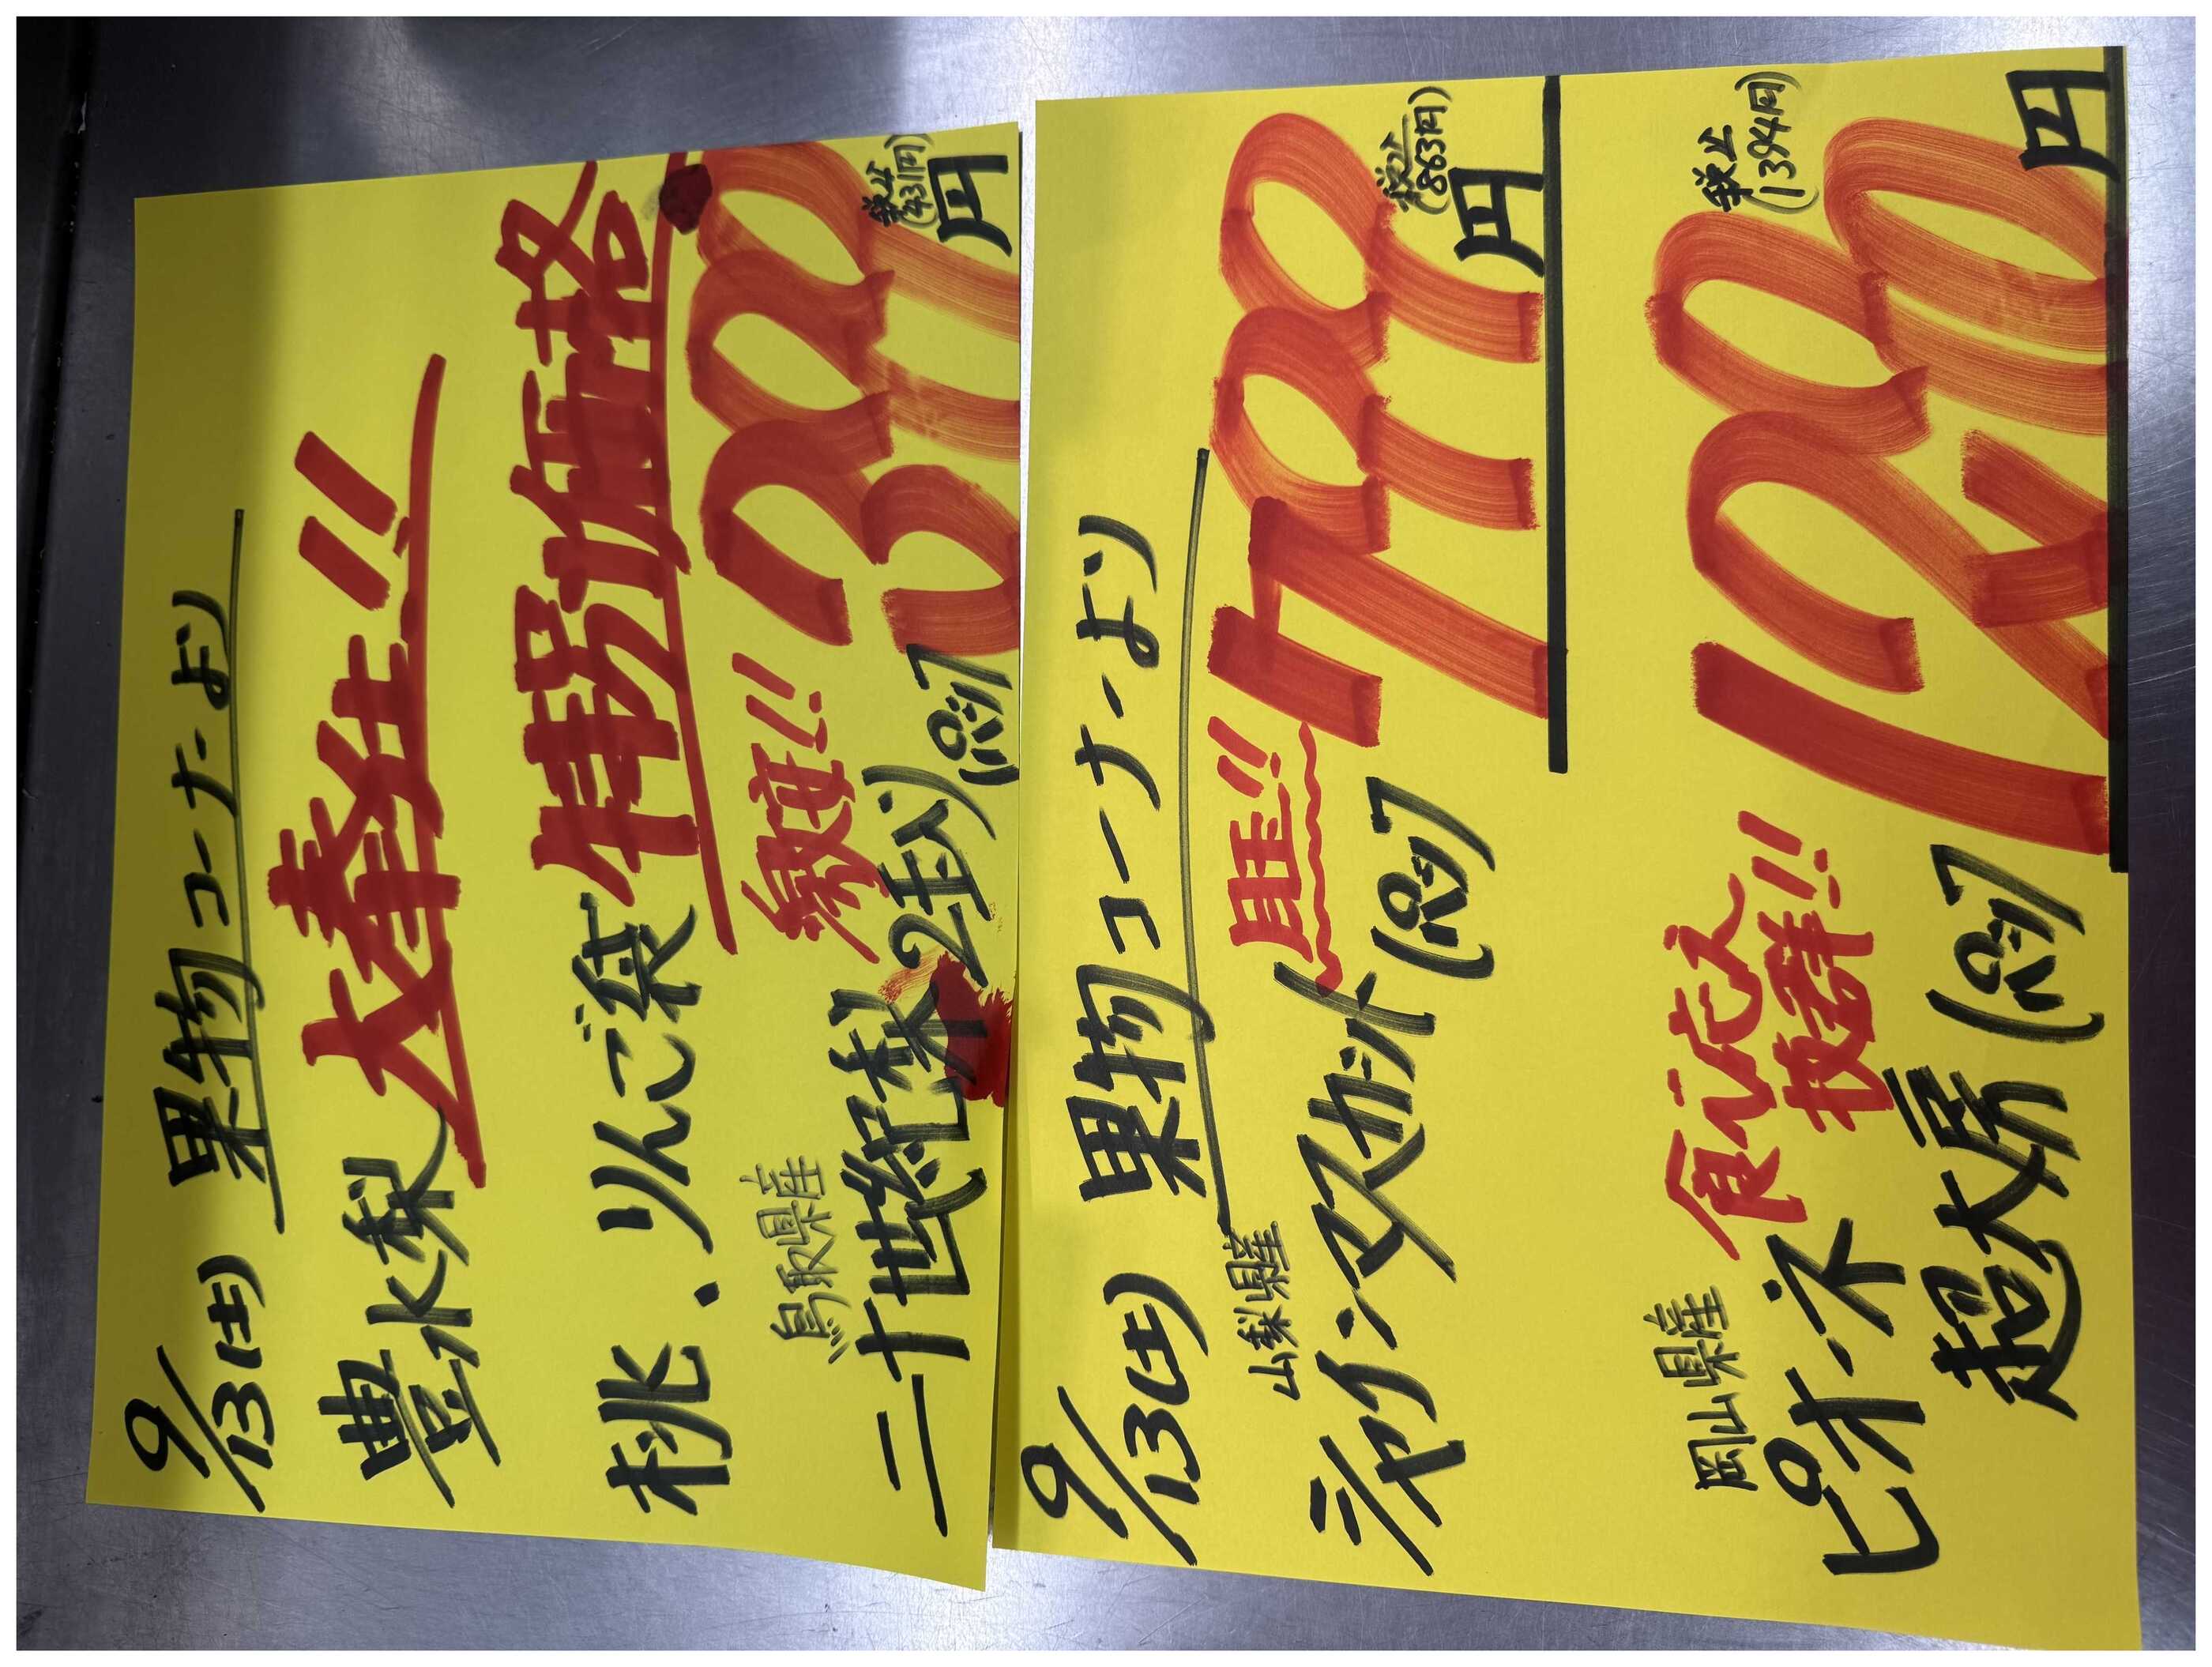 9/13(土) 果物コーナーより
豊水梨 大奉仕!!
桃・りんご袋 特別価格
鳥取県産
二十世紀梨 2玉入り 399円
税込(431円)
9/13(土) 果物コーナーより
山梨県産 目玉!!
シャインマスカット 799円
税込(863円)
岡山県産 食べ応え
抜群!!
ピオーネ
超大房 円
税込(1394円)